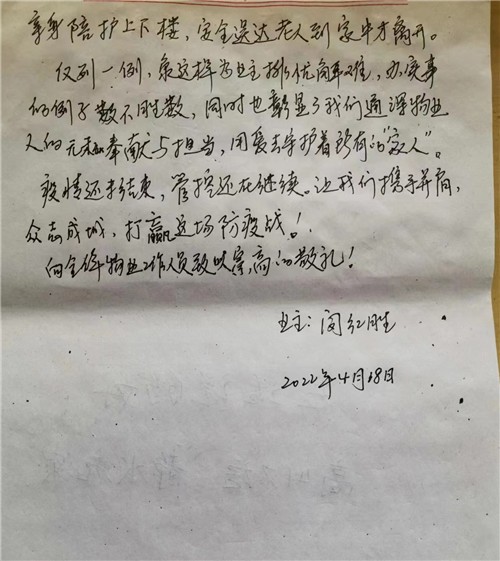 亲身陪护上下楼，安全送达老人到家中才离开。
仅列一例，象这样为业主排忧解难，办实事
的例子数不胜数，同时也彰显了我们通译物业
人的无私奉献与担当，用爱去守护着所有的“家人”。
疫情还未结束，管控还在继续。让我们携手并肩，
众志成城，打赢这场防疫战！
向全体物业工作人员致以崇高的敬礼！
业主：闵红胜
2022年4月18日